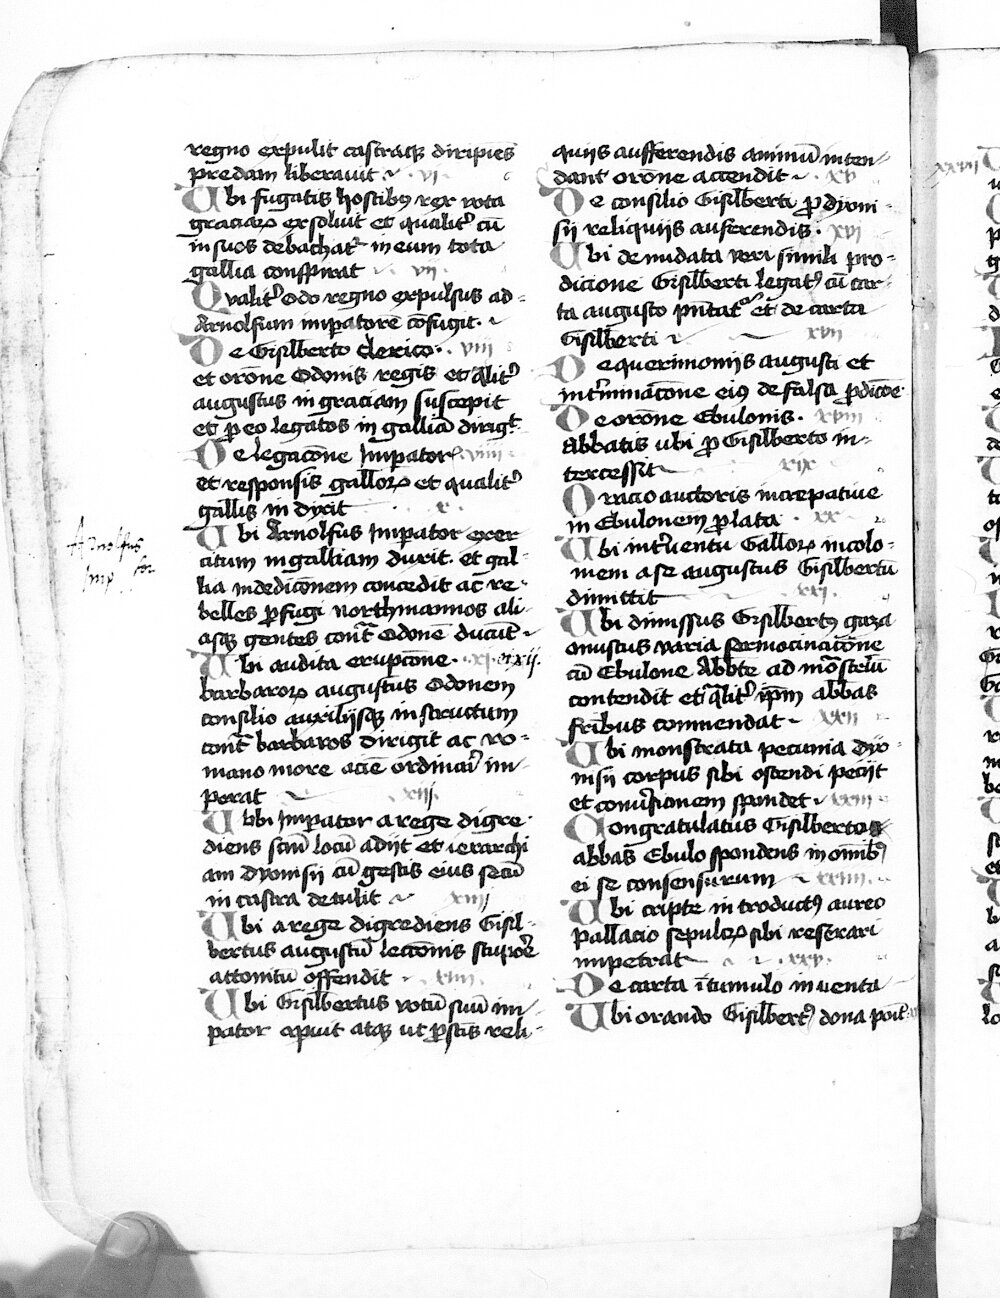 regno expulit castraq; diripiēs
predam liberauit ~ · vi ·
Ubi fugatis hostib9 rex vota
graciaꝝ exsoluit et qualit' cū
in suos debachat' in eum tota
gallia conspirat · vii ·
Qualit' Odo regno expulsus ad-
Arnolfum inpatorē cōfugit · ~
De Gisilberto clerico · viii
et orōne Odonis regis et q̄lit'
augustus in graciam suscepit
et p eo legatos in galliā dirigt
De legacōne Inpatoꝝ viiii
et responsis galloꝝ et qualit'
gallis in dixit · x ·
Ubi Arnolfus Inpator exer
citum in galliam duxit. et gal-
lia in dedicōnem concedit ac re-
belles pfugi northmannos ali-
asq; gentes cont̄ Odonē ducūt ~
Ubi audita erupcōne · xi et xii.
barbaroꝝ augustus Odonem
consilio auxilijsq; instructum
cont̄ barbaros dirigit ac ro-
mano more aciē ordinari im-
perat ~ xiii.
Ubbi Inpator a rege digre-
diens scm̄ locū adijt et ierarchi
am Dyonisij cū gestis eius secū
in castra detulit ~ xiii
Ubi a rege digrediens Gisil-
bertus augustū lectōnis stupore
attonitū offendit ~ xiiii.
Ubi Gisilbertus votū suū im-
pator apuit atq; ut pstis reli-
quijs aufferendis animū inten-
dant orōne accendit ~ · xv
De consilio Gisilberti p dyoni-
sij reliquijs auferendis · xvi
Ubi denudata veri simili pro-
dicione Gisilberti legat9 cū car-
ta augusto pn̄tat' et de carta
Gisilberti ~ xvii
De querimonijs augusti et
int'minacōne ei9 de falsa pdicōe
De orōne Ebulonis · xviii
Abbatis ubi p Gisilberto in-
tercessit ~ xix
Oracio auctoris increpatiue
in Ebulonem plata · xx ·
Ubi int'uentu Galloꝝ incolo-
mem a se augustus Gisilbertū
dimittit xxi.
Ubi dimissus Gisilbert9 gaza
onustus varia sermocinacōne
cū Ebulone Abbte ad mōst'iū
contendit et q̄lit' ip̄m abbas
frībus commendat ~ xxii
Ubi monstrata pecunia dyo-
nisij corpus sibi ostendi pecijt
et conu'sionem spondet ~ xxiii
Congratulatus Gisilberto
abbas Ebulo spondens in omib9
ei se consensurum ~ xxiiii.
Ubi cripte introduct9 aureo
pallacio sepulcꝝ sibi reserari
impetrat ~ · xxv.
De carta ī tumulo inuenta
Ubi orando Gisilbert9 dona ponit
Arnolfus
Imp
xxvii